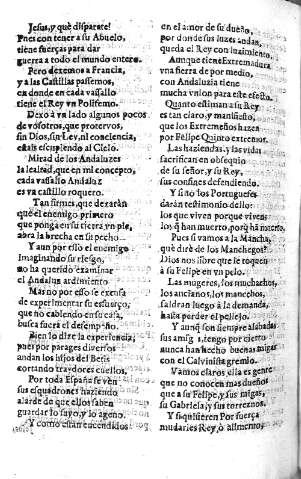 Jesus, y què disparate!
Pues con tener a su Abuelo,
tiene fuerças para dar
guerra a todo el mundo entero.
Pero dexemos a Francia,
y a las Castillas passemos,
en donde en cada vassallo
tiene el Rey vn Polifemo.
Dexo à vn lado algunos pocos
de vosotros, que protervos,
sin Dios, sin Ley, ni conciencia,
estais escupiendo al Cielo.
Mirad de los Andaluzes
la lealtad, que en mi concepto,
cada vassallo Andaluz
es vn castillo roquero.
Tan firmes, que dexaràn
que el enemigo primero
que ponga en su tierra vn pie,
abra la brecha en su pecho
Y aun por esso el enemigo
Imaginando su riesgo,
no ha querido examinar
el Andaluz ardimiento
Mas no por esso se escusa
de experimentar su esfuerço,
que no cabiendo en su casa,
busca fuera el desempeño.
Bien lo dize la experiencia;
pues por parages diversos
andan los hijos del Betis
cortando traydores cuellos.
Por toda España se vèn
sus esquadrones haziendo
alarde de que ellos saben
guardar lo suyo, y lo ageno.
Y como estàn encendidos
en el amor de su dueño,
por donde sus luzes andan,
queda el Rey con luzimiento.
Aunque tiene Extremadura
vna fierra de por medio,
con Andaluzia tiene
mucha vnion para este efecto.
Quanto estiman a su Rey
es tan claro, y manifiesto,
que los Extremeños hazen
por Felipe Quinto extremos.
Las haziendas, y las vidas
sacrifican en obsequio
de su señor, y su Rey,
sus confines defendiendo.
Y sino los Portugueses
daràn testimonio dello:
los que viven porque viven,
los q̃ han muerto, porq̃ hà muerto.
Pues si vamos a la Mancha,
què dirè de los Manchegos?
Dios nos libre que le toquen
à su Felipe en vn pelo.
Las mugeres, los muchachos,
los ancianos, los mancebos,
saldran luego à la demanda,
hasta perder el pellejo.
Y aunq̃ son siempre alabadas
sus amig s, tengo por cierto
nunca han hecho buenas migas
con el Calvinista gremio.
Vamos claros, ella es gente
que no conocen mas dueños
que a su Felipe, y sus migas,
su Gabriela, y sus torreznos.
Y si quisieren Por fuerça
mudarles Rey, ò alimento,